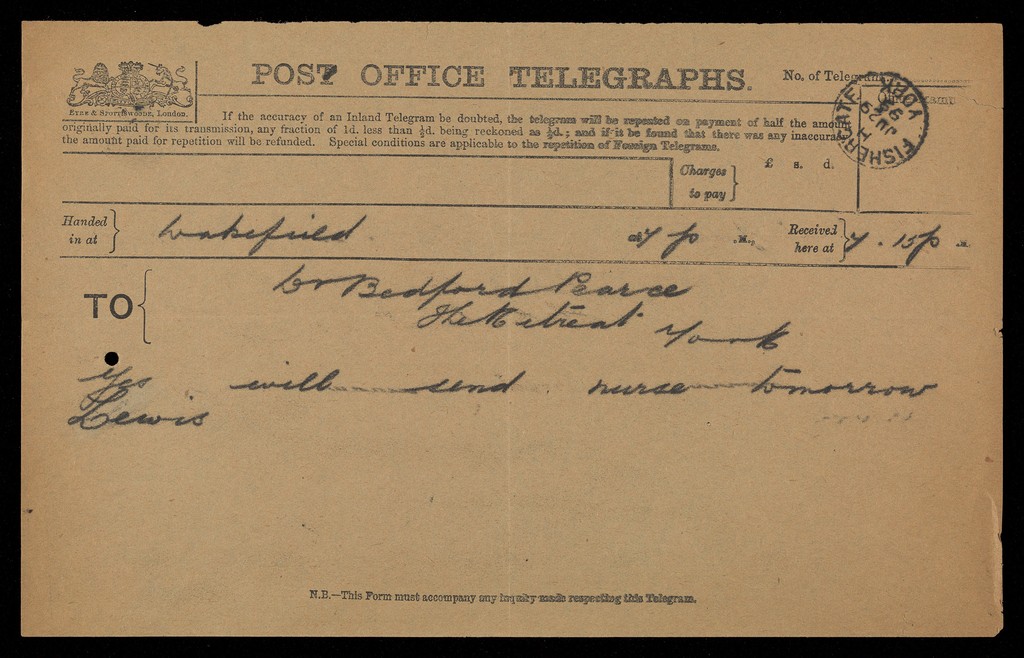 POST OFFICE TELEGRAPHS.
No. of Telegram
EYRE & SPOTTISWOODE, LONDON.
If the accuracy of an Inland Telegram be doubted, the telegram will be repeated on payment of half the amount
originally paid for its transmission, any fraction of 1d. less than ½d. being reckoned as ½d.; and if it be found that there was any inaccuracy,
the amount paid for repetition will be refunded. Special conditions are applicable to the repetition of Foreign Telegrams.
FISHERGATE YORK
JU 29
Charges to pay } £ s. d.
Handed in at } Wakefield at 7 p .M., Received here at } 7.15 p M.
TO { Dr Bedford Pearce
The Retreat York
Yes will send nurse tomorrow
Lewis
N.B.—This Form must accompany any inquiry made respecting this Telegram.